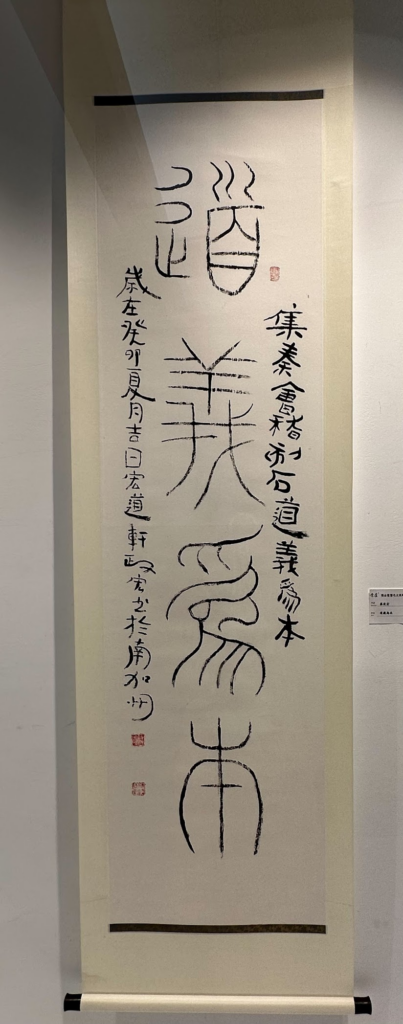 道義為本
集秦會稽刻石道義為本
歲在癸卯夏月吉日宏道軒政宏書於南加州